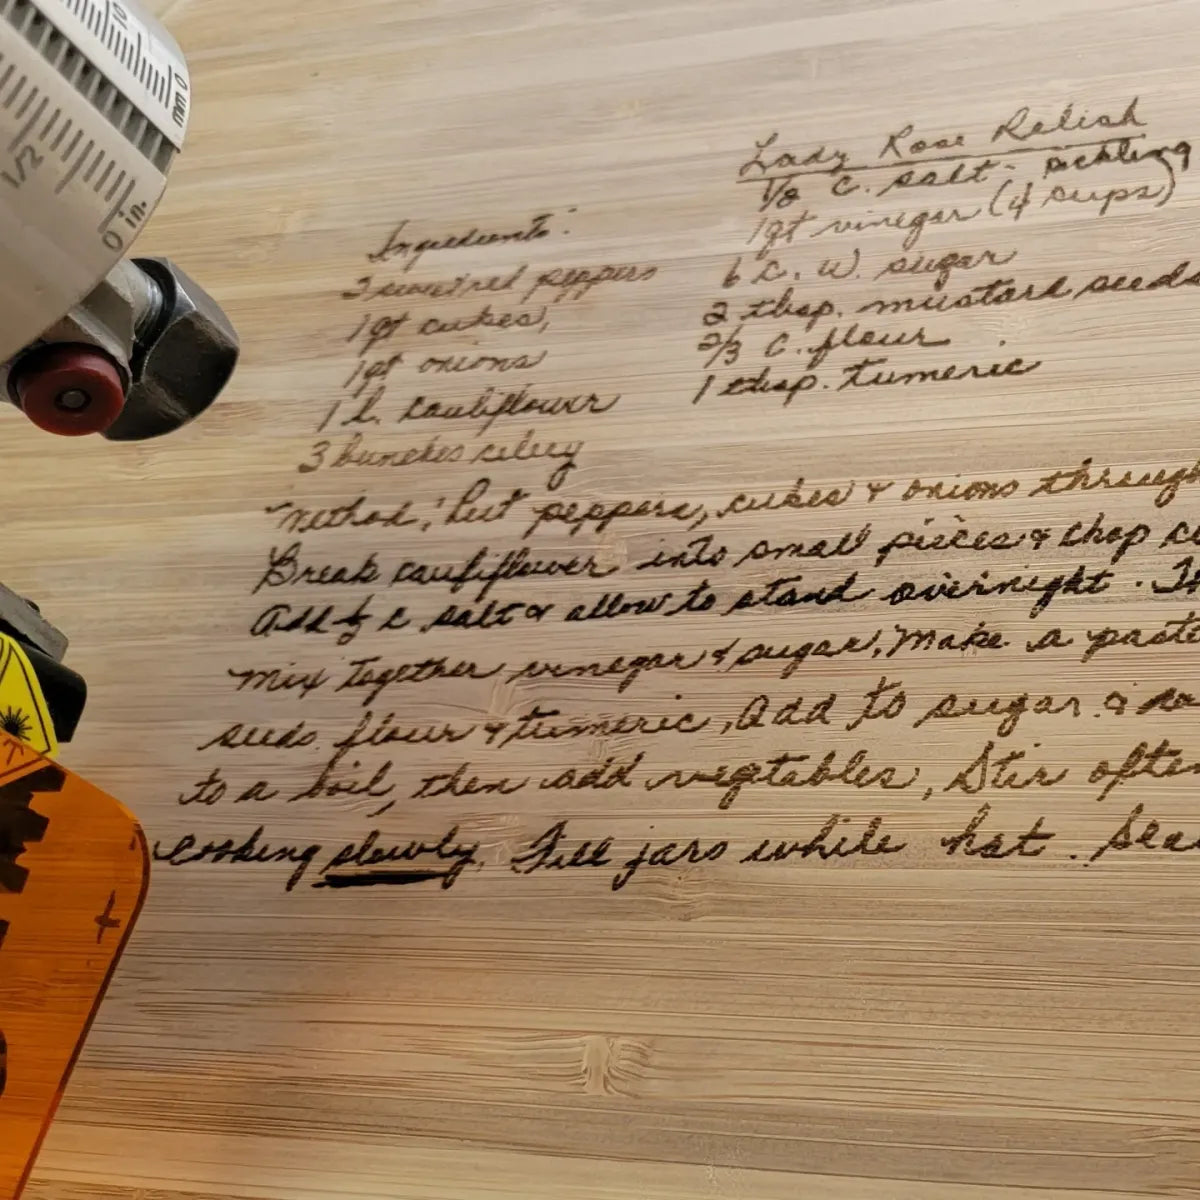 Lady Rose Relish
Ingredients:
3 sweet red peppers
1 qt cukes,
1 qt onions
1 l. cauliflower
3 bunches celery
1/2 C. salt - pickling
1 qt vinegar (4 cups)
6 C. W. sugar
2 tbsp. mustard seeds
2/3 C. flour
1 tbsp. tumeric
Method: Put peppers, cukes & onions through
Break cauliflower into small pieces & chop
Add ½ c salt & allow to stand overnight.
Mix together vinegar & sugar, Make a paste
seeds flour & tumeric, Add to sugar &
to a boil, then add vegetables, Stir often
cooking slowly. Fill jars while hot.
mm 0
1/2
0 in.